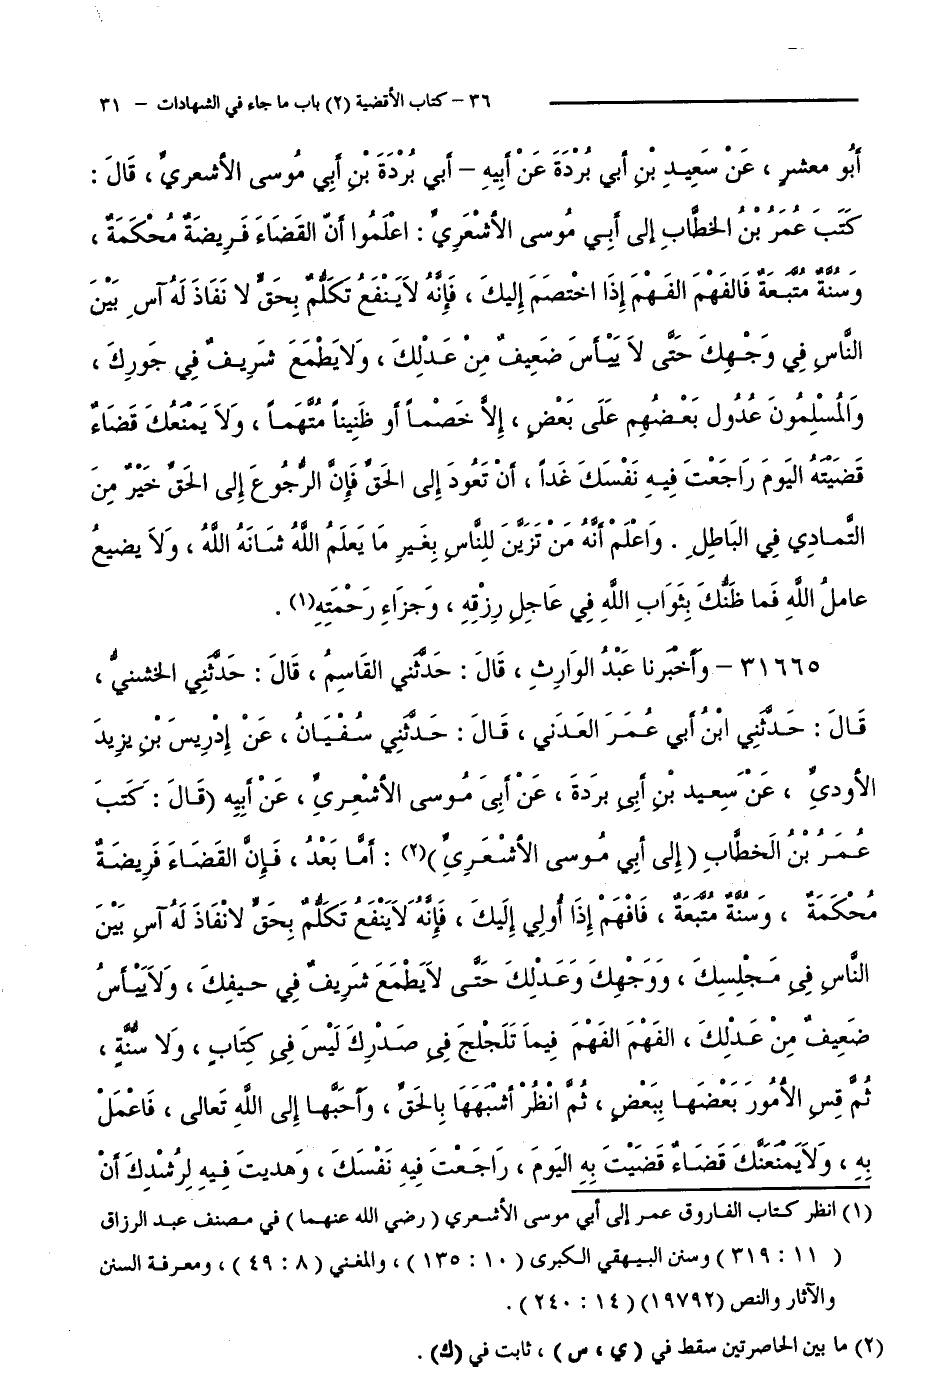 ٣٦ – كتاب الأقضية (٢) باب ما جاء في الشهادات – ٣١
أَبُو معشرٍ ، عَنْ سَعِيدِ بْنِ أَبي بُرْدَةَ عَنْ أَبِيهِ – أَبي بُرْدَةَ بْنِ أَبِي مُوسى الأشعريِّ ، قَالَ :
كَتَبَ عُمَرُ بْنُ الخطَّابِ إلى أَبِي مُوسى الأَشْعَرِيِّ : اعلَمُوا أَنَّ القَضَاءَ فَرِيضَةٌ مُحْكَمَةٌ ،
وَسُنَّةٌ مُتَّبَعَةٌ فَالفَهْمَ الفَهْمَ إِذَا اختصَمَ إِليكَ ، فَإِنَّهُ لاَيَنْفَعُ تَكَلُّمٌ بِحَقٍّ لا نَفَاذَ لَهُ آسِ بَيْنَ
النَّاسِ فِي وَجْهِكَ حَتَّى لاَ يَيْأَسَ ضَعِيفٌ مِنْ عَدْلِكَ ، وَلايَطْمَعَ شَرِيفٌ فِي جَورِكَ ،
وَالمُسْلِمُونَ عُدُول بَعْضُهِم عَلَى بَعْضٍ ، إِلاَّ خَصْماً أو ظَنِيناً مُتَّهَماً ، وَلاَ يَمْنَعُكَ قَضَاءٌ
قَضَيْتَهُ اليَومَ رَاجَعْتَ فِيهِ نَفْسَكَ غَداً ، أَنْ تَعُودَ إِلى الحَقِّ فَإِنَّ الرُّجُوعَ إِلى الحَقِّ خَيْرٌ مِنَ
التَّمادِي فِي البَاطِلِ . وَاعْلَمْ أَنَّهُ مَنْ تَزَيَّنَ للِنَّاسِ بِغَيرِ مَا يَعلَمُ اللَّهُ شَانَهُ اللَّهُ ، وَلاَ يضيعُ
عاملُ اللَّهِ فَما ظَنُّكَ بِثَوَابِ اللَّهِ فِي عَاجِلِ رِزْقِهِ ، وَجزَاءِ رَحْمَتِهِ(١) .
٣١٦٦٥ – وَأَخْبَرنا عَبْدُ الوَارِثِ ، قَالَ : حَدَّثَني القَاسِمُ ، قَالَ : حَدَّثَنِي الخشنيُّ ،
قَالَ : حَدَّثَنِي ابْنُ أَبي عُمَرَ العَدَني ، قَالَ : حَدَّثَنِي سُفْيَانُ ، عَنْ إِدْرِيسَ بْنِ يزيدَ
الأَودِيِّ ، عَنْ سَعِيد بْنِ أَبِي بردَةَ ، عَنْ أَبِيَ مُوسى الأَشْعِريِّ ، عَنْ أَبِيهِ (قَالَ : كَتَبَ
عُمَرُ بْنُ الخَطَّابِ ( إلى أَبِي مُوسى الأَشْعَرِيِّ )(٢) : أَمَّا بَعْدُ ، فَإِنَّ القَضَاءَ فَرِيضَةٌ
مُحْكَمَةٌ ، وَسُنَّةٌ مُتَّبَعَةٌ ، فَافْهَمْ إِذَا أُولي إِلَيكَ ، فَإِنَّهُ لاَيَنْفَعُ تَكَلُّمٌ بِحَقٍّ لانْفَاذَ لَهُ آسِ بَيْنَ
النَّاسِ فِي مَجْلِسِكَ ، وَوَجْهِكَ وَعَدْلِكَ حَتَّى لاَيَطْمَعَ شَرِيفٌ فِي حيفِكَ ، وَلاَيَيْأَسُ
ضَعِيفٌ مِنْ عَدْلِكَ ، الفَهْمَ الفَهْمَ فِيماَ تَلَجْلجَ فِي صَدْرِكَ لَيْسَ فِي كِتَابٍ ، وَلا سُنَّةٍ ،
ثُمَّ قِسِ الأُمُورَ بَعْضَهَا بِبَعْضٍ ، ثُمَّ انْظُرْ أَشْبَهَهَا بِالحَقِّ ، وَأَحَبَّها إِلى اللَّهِ تَعالى ، فَاعْمَلْ
بِهِ ، وَلاَيَمْنَعَنَّكَ قَضَاءٌ قَضَيْتَ بِهِ اليَومَ ، رَاجَعْتَ فِيهِ نَفْسَكَ ، وَهديتَ فِيهِ لِرُشْدِكَ أَنْ
(١) انظر كتاب الفاروق عمر إلى أبي موسى الأشعري ( رضي الله عنهما ) في مصنف عبد الرزاق
( ١١ : ٣١٩ ) وسنن البيهقي الكبرى ( ١٠ : ١٣٥ ) ، والمغني ( ٨ : ٤٩ ) ، ومعرفة السنن
والآثار والنص (١٩٧٩٢) ( ١٤ : ٢٤٠ ) .
(٢) ما بين الحاصرتين سقط في ( ي ، س ) ، ثابت في (ك) .